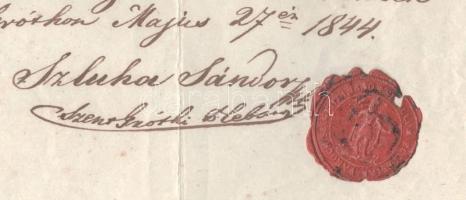 Gróthon Majus 27én 1844.
Szluha Sándor
Szent Gróthi Plebános